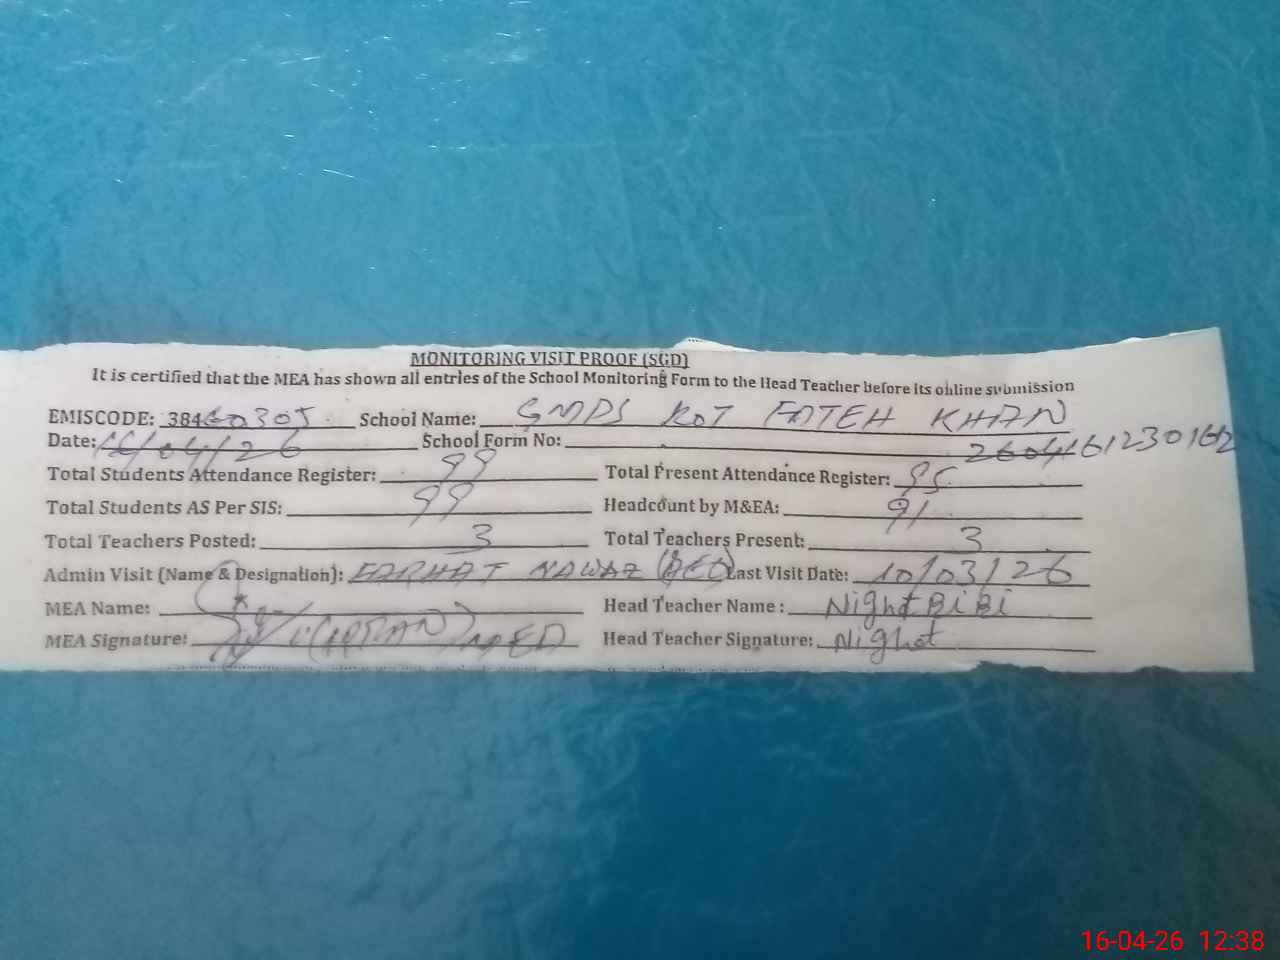 MONITORING VISIT PROOF (SGD)
It is certified that the MEA has shown all entries of the School Monitoring Form to the Head Teacher before its online submission
EMISCODE: 38460305 School Name: GMPS KOT FATEH KHAN
Date: 16/04/26 School Form No: 2604161230162
Total Students Attendance Register: 99 Total Present Attendance Register: 95
Total Students AS Per SIS: 99 Headcount by M&EA: 91
Total Teachers Posted: 3 Total Teachers Present: 3
Admin Visit (Name & Designation): FARHAT NAWAZ (AEO) Last Visit Date: 10/03/26
MEA Name: Head Teacher Name : Night Bi Bi
MEA Signature: Head Teacher Signature: Night
16-04-26 12:38